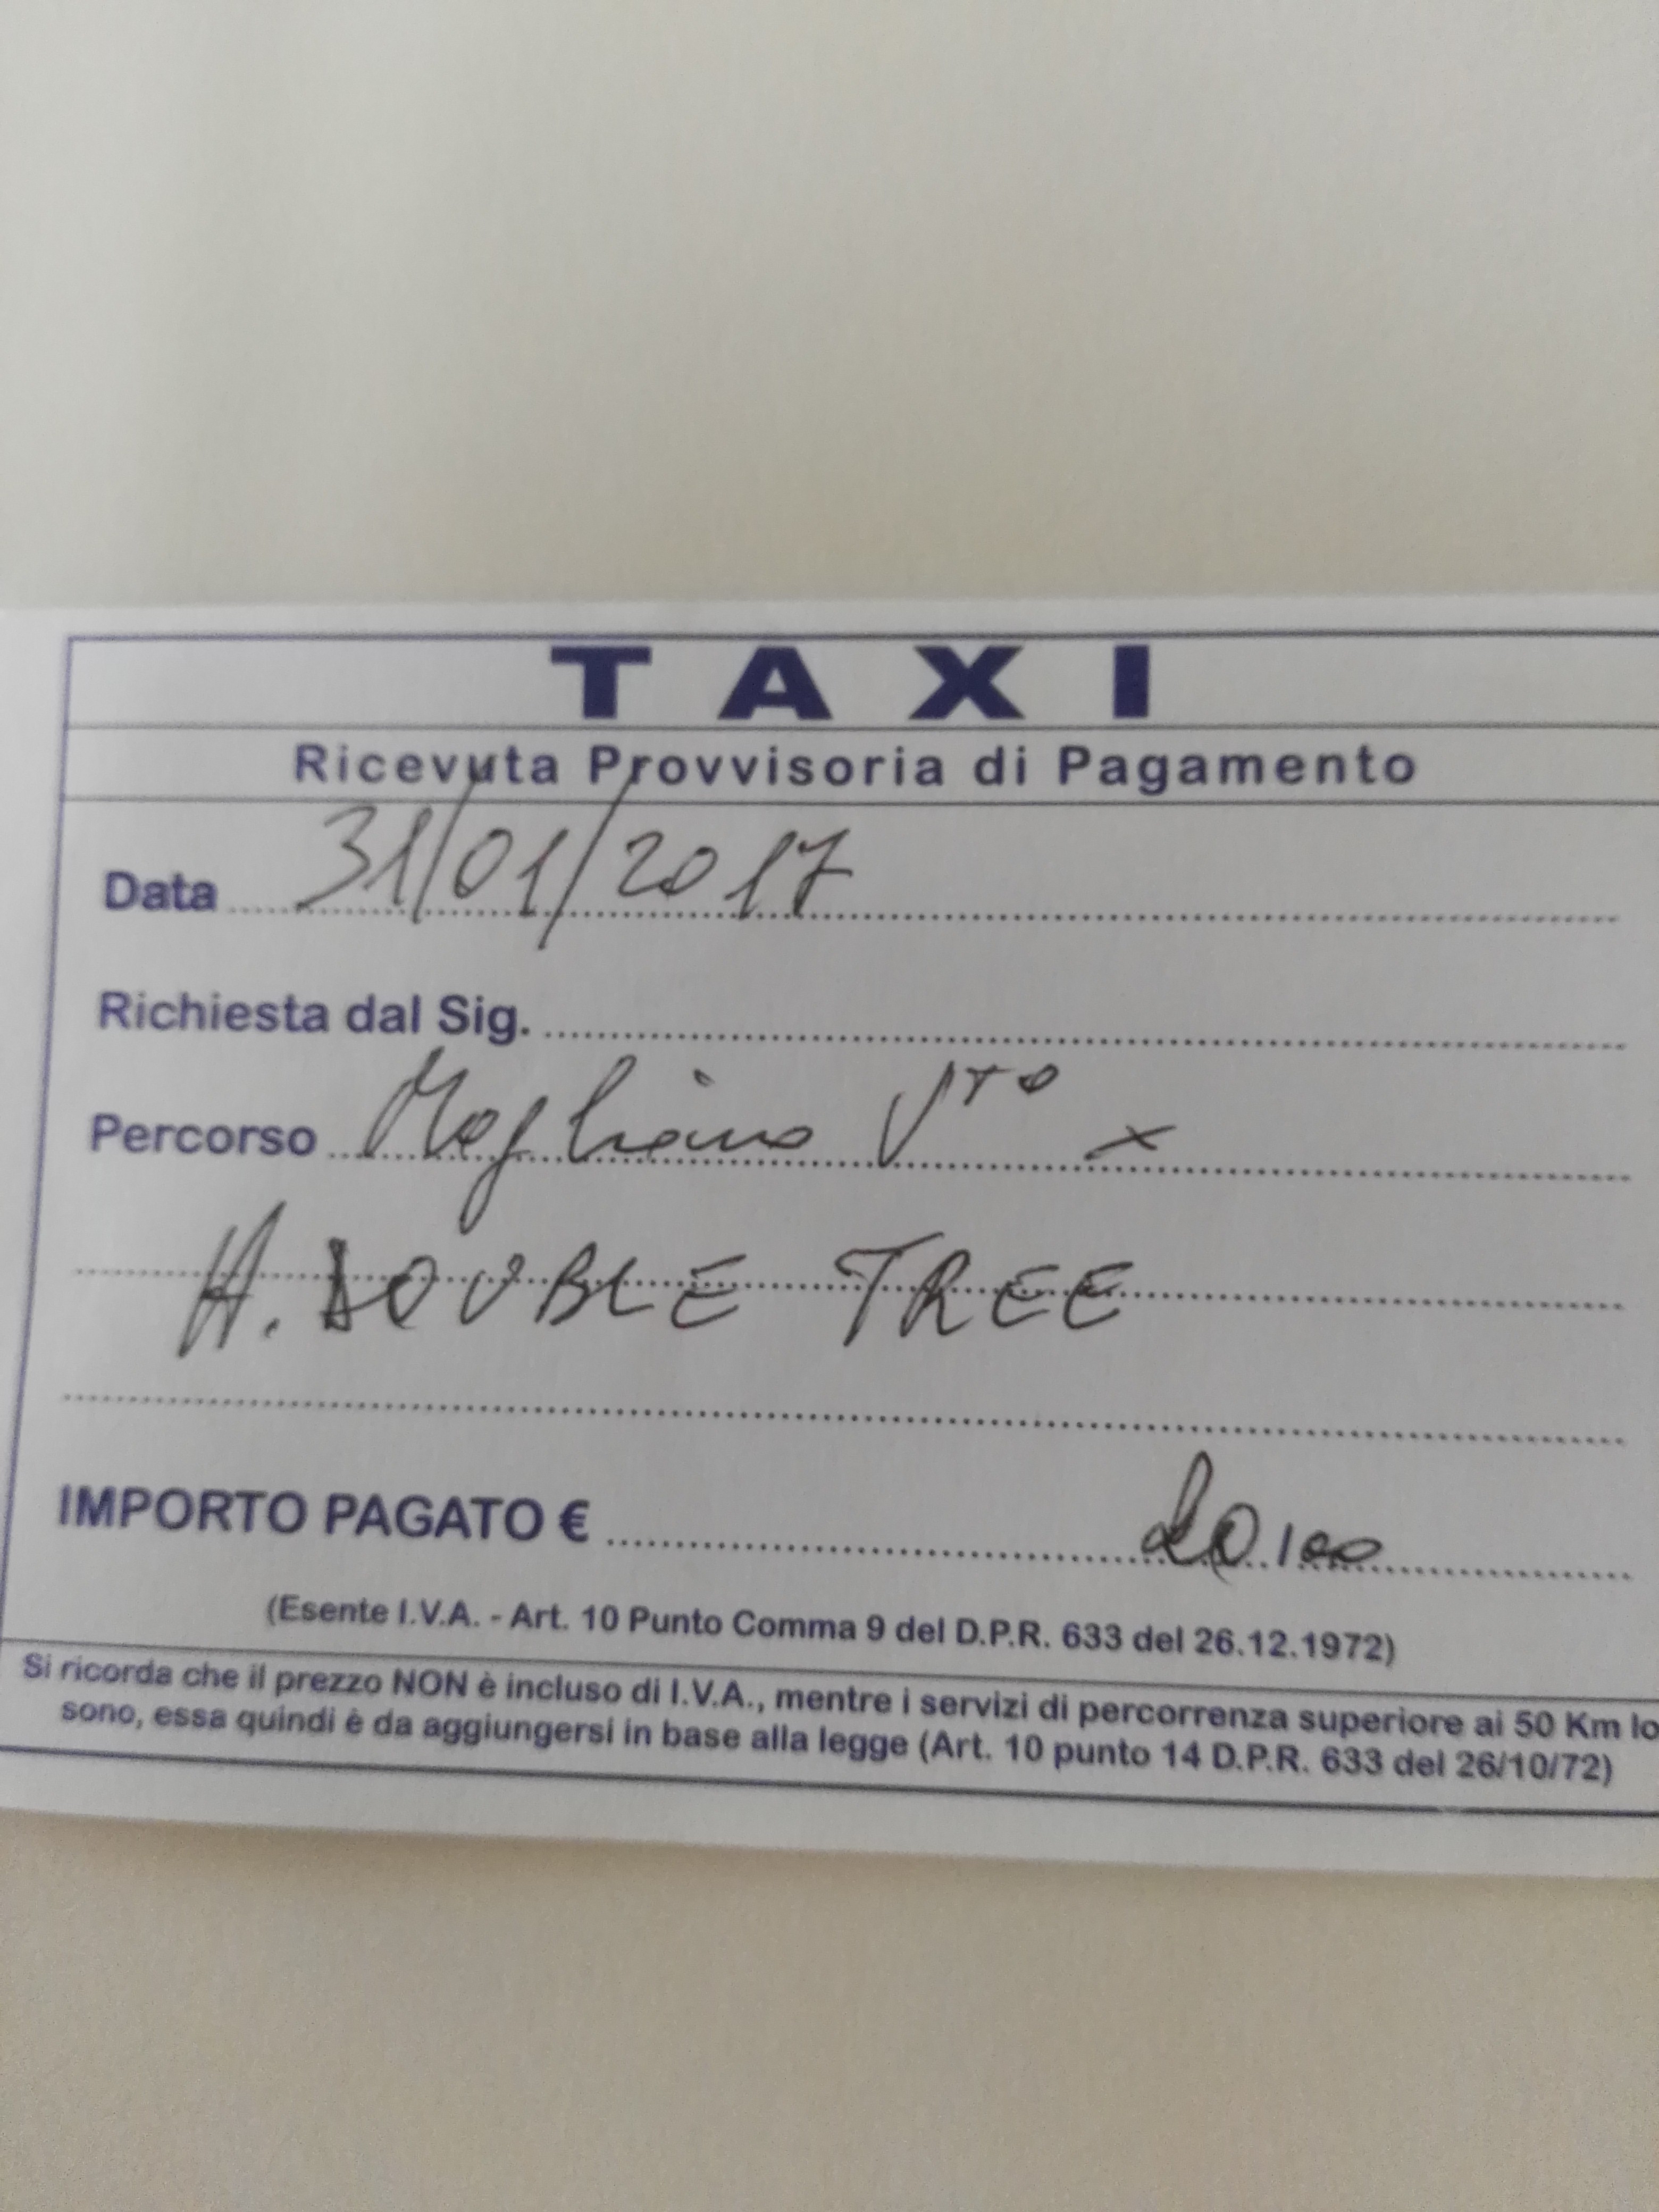 TAXI
Ricevuta Provvisoria di Pagamento
Data 31/01/2017
Richiesta dal Sig.
Percorso Mogliano Vto x
H. DOUBLE TREE
IMPORTO PAGATO € 20,00
(Esente I.V.A. - Art. 10 Punto Comma 9 del D.P.R. 633 del 26.12.1972)
Si ricorda che il prezzo NON è incluso di I.V.A., mentre i servizi di percorrenza superiore ai 50 Km lo
sono, essa quindi è da aggiungersi in base alla legge (Art. 10 punto 14 D.P.R. 633 del 26/10/72)